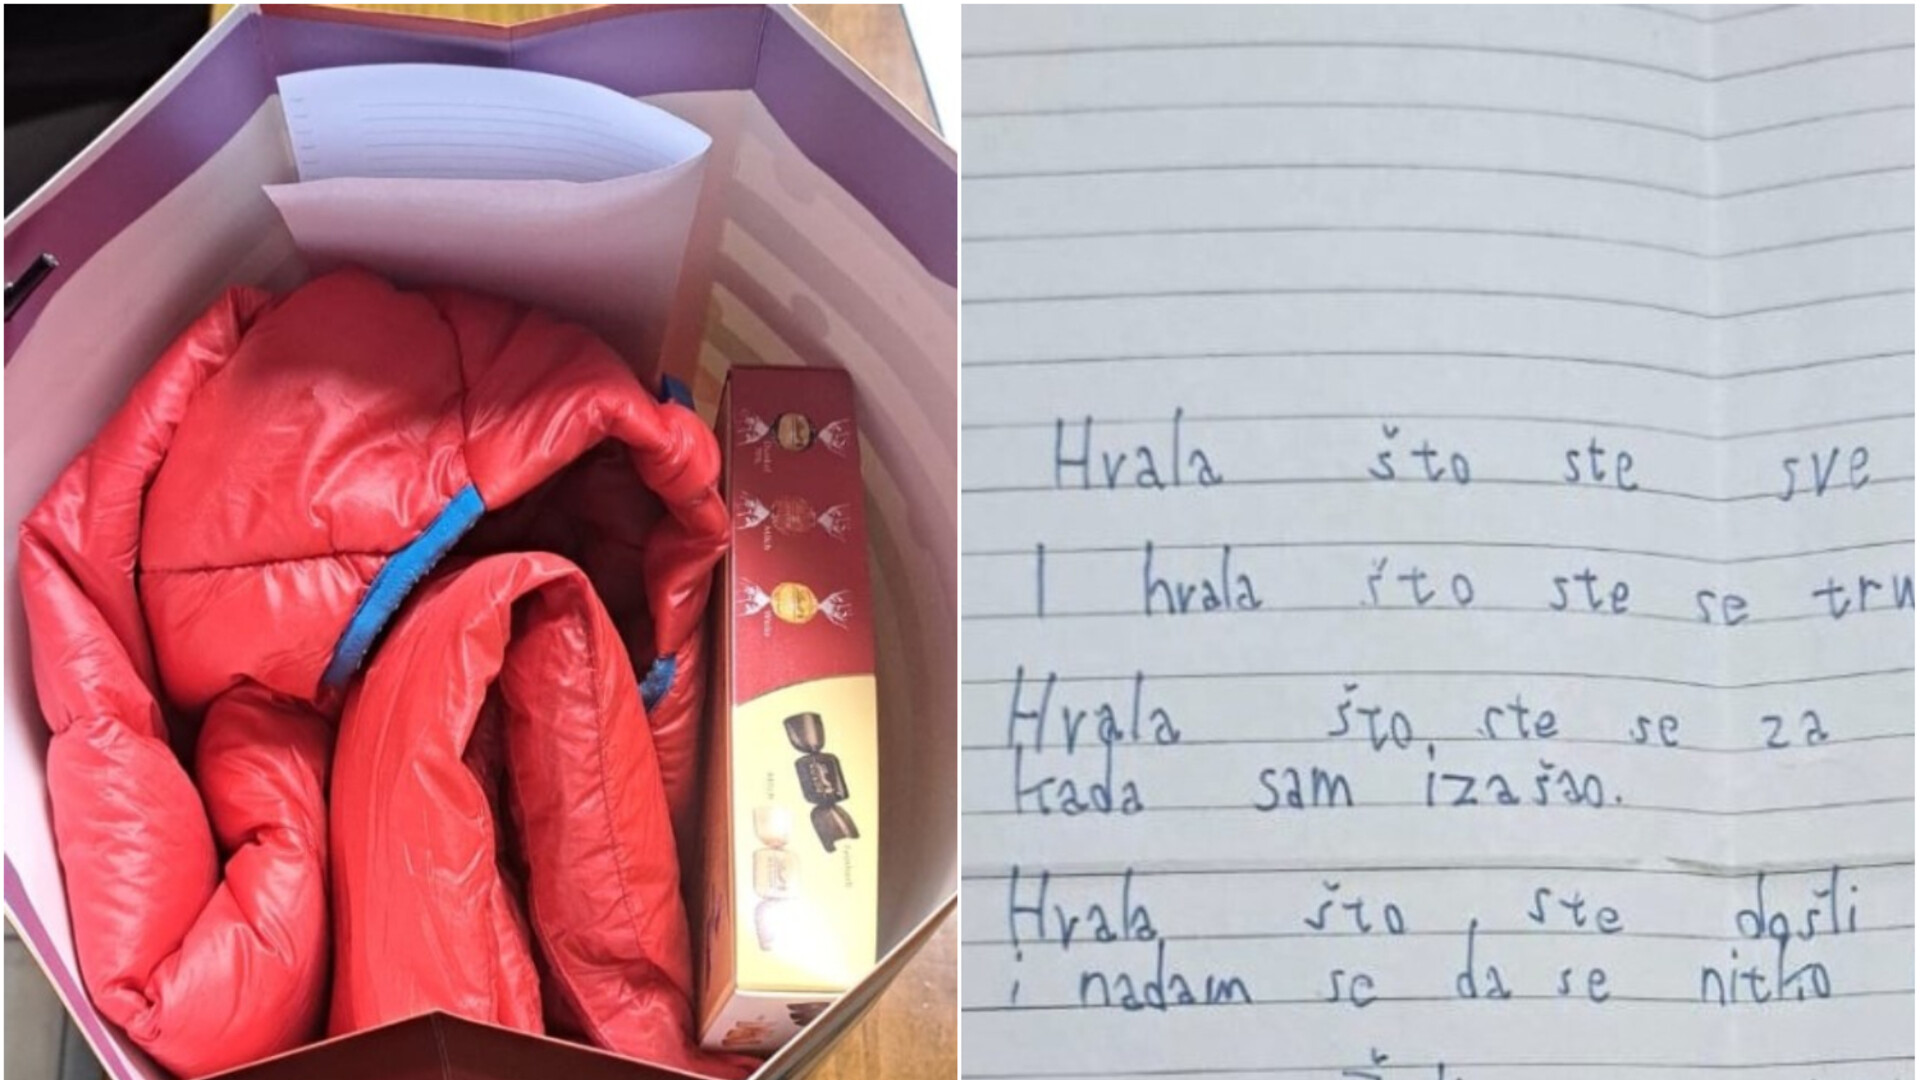 Hvala što ste sve
I hvala što ste se tru
Hvala što ste se za
kada sam izašao.
Hvala što ste došli
i nadam se da se nitko